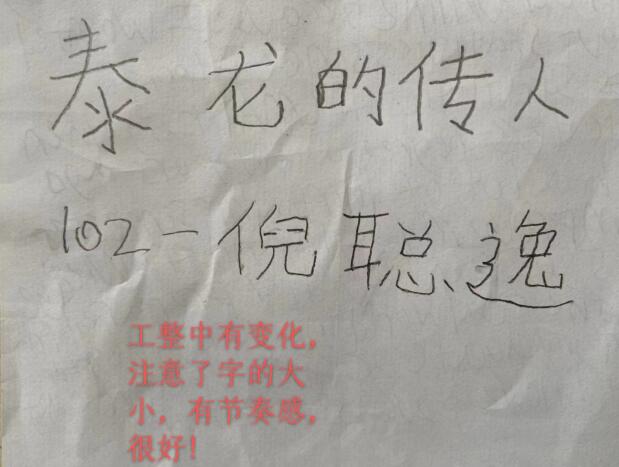 泰龙的传人
102-倪聪逸
工整中有变化，
注意了字的大
小，有节奏感，
很好！